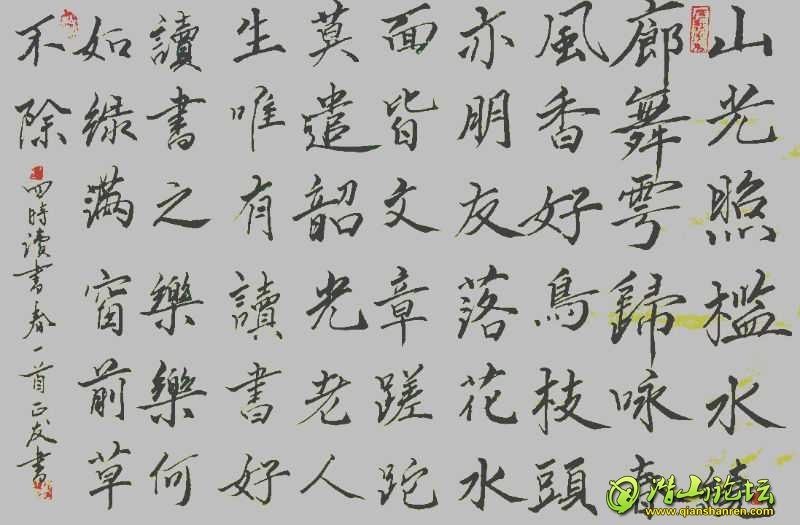 山光照檻水繞
廊舞雩歸咏春
風香好鳥枝頭
亦朋友落花水
面皆文章蹉跎
莫遣韶光老人
生唯有讀書好
讀書之樂樂何
如緑滿窗前草
不除
四時读書春一首正友書
潜山论坛
www.qianshanren.com